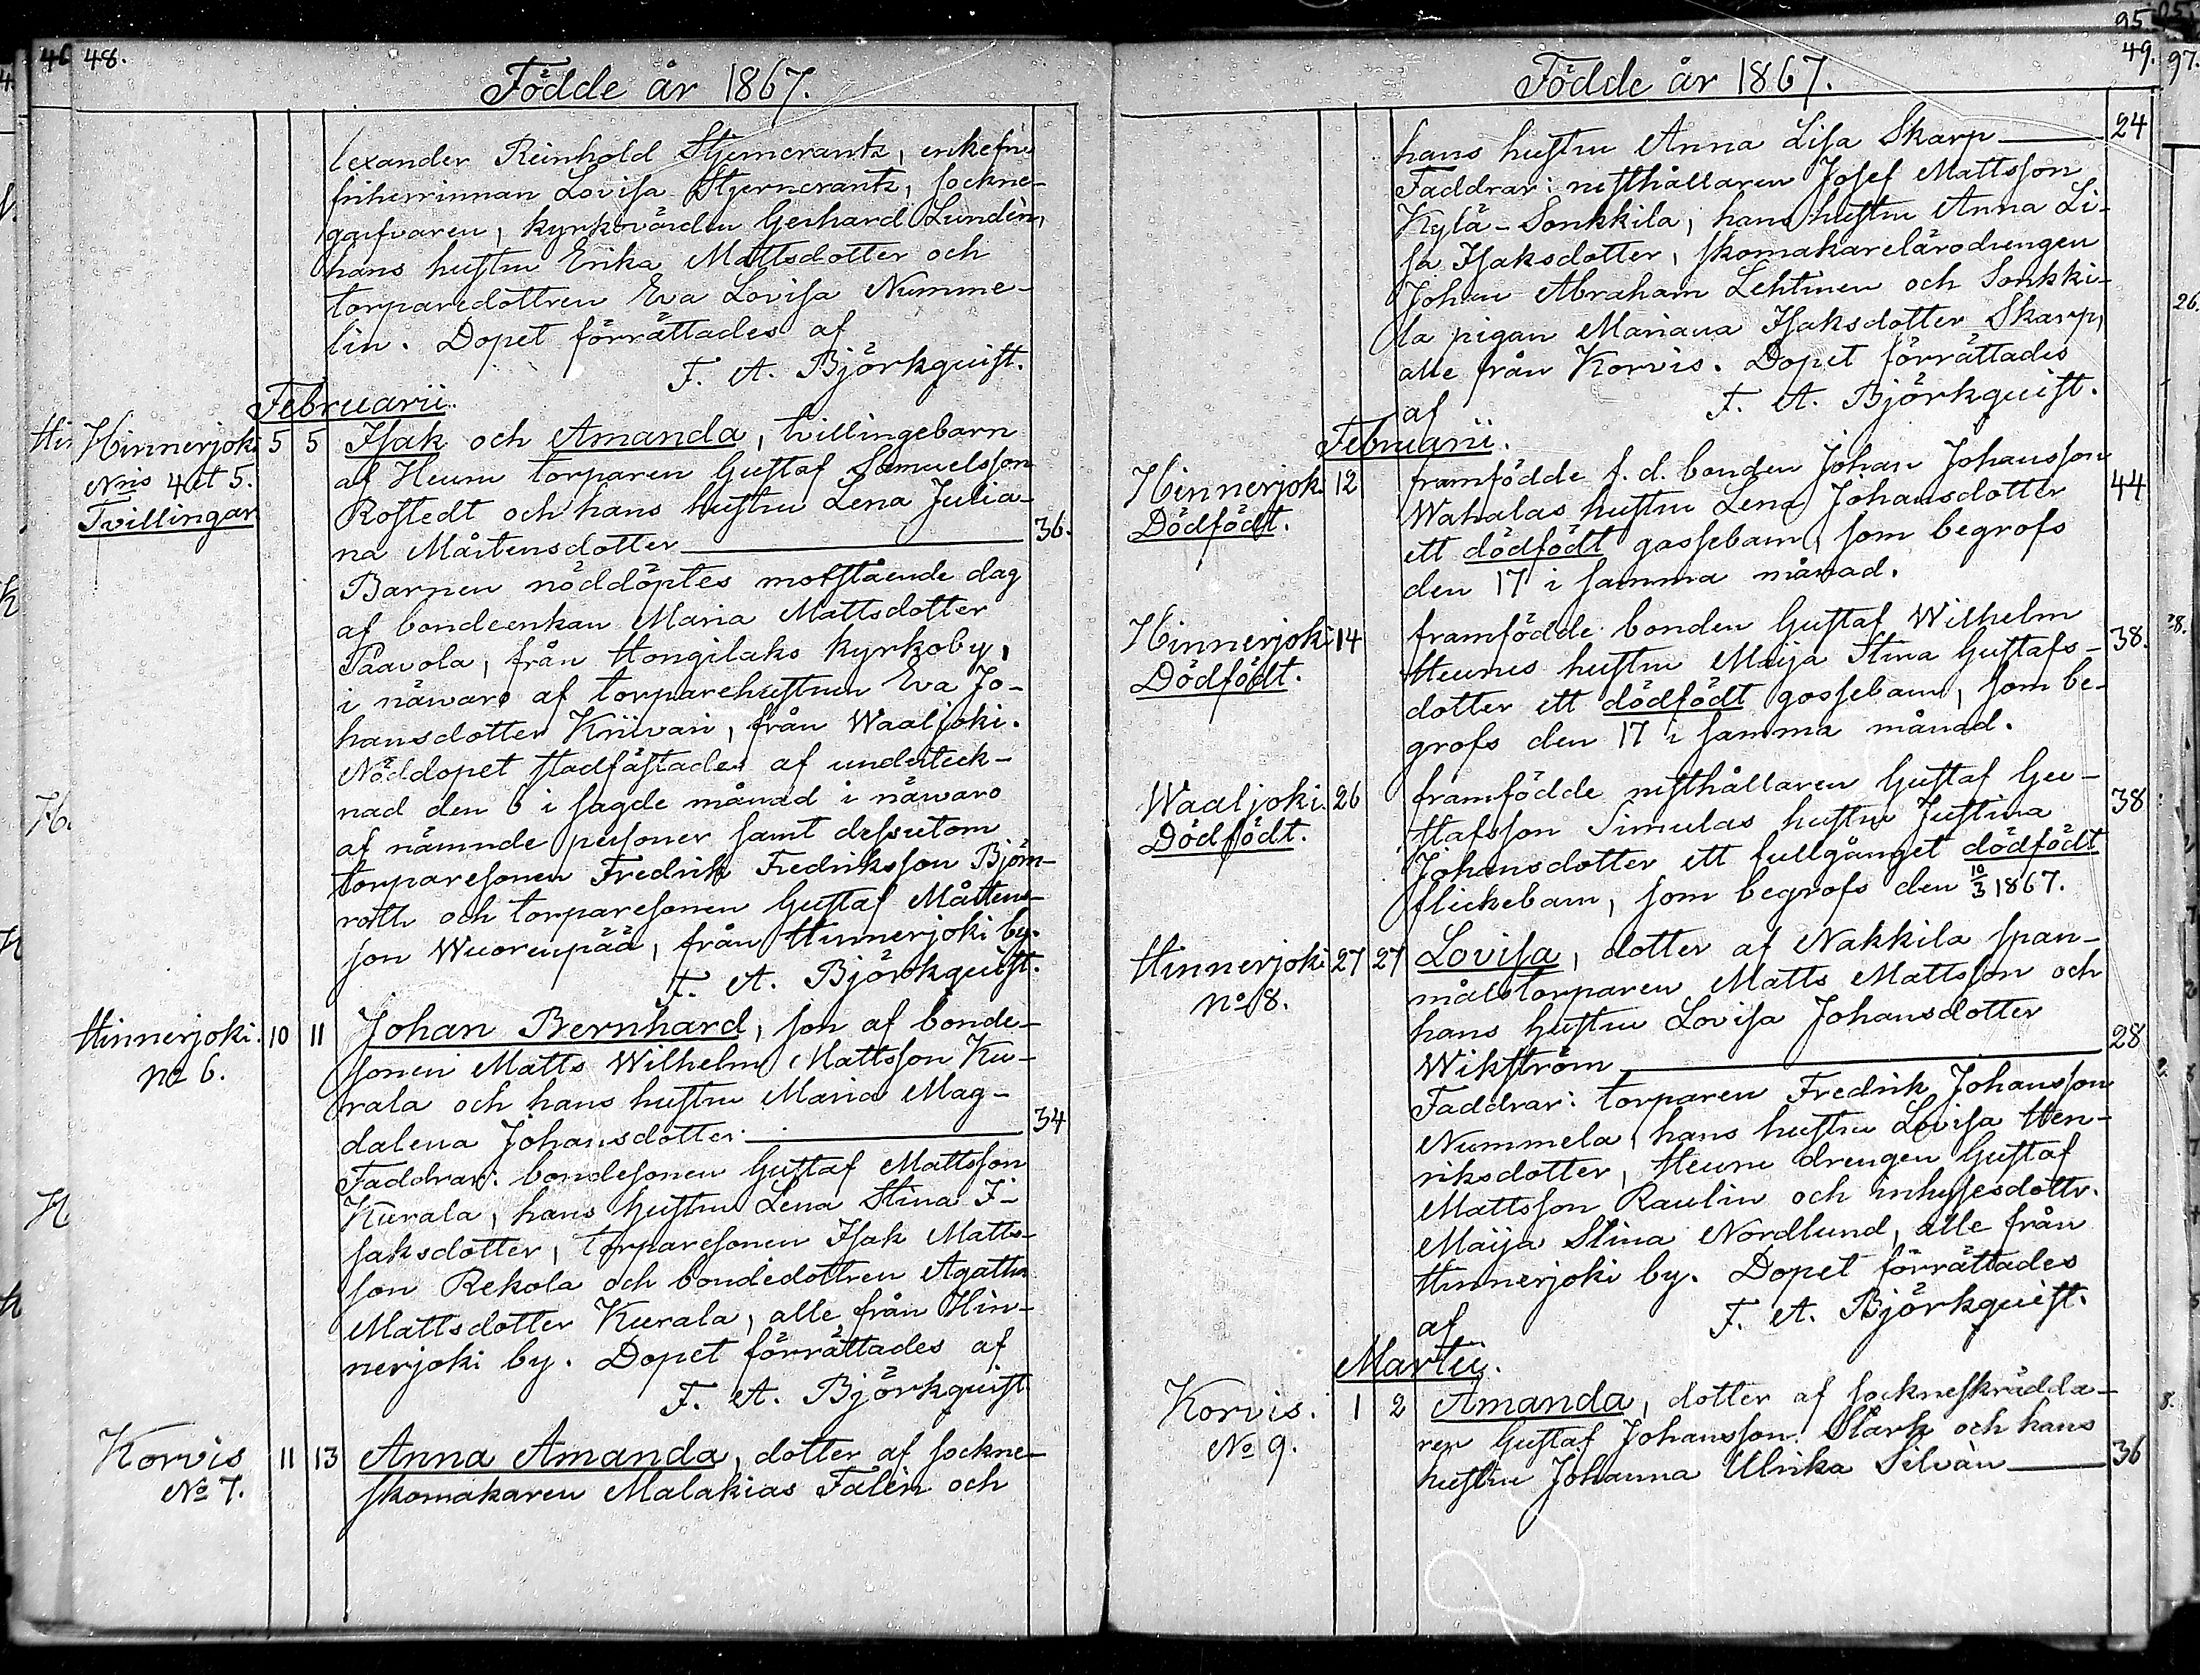 48.
Födde år 1867.
lexander Reinhold Stjerncrantz, enkefru
friherrinnan Lovisa Stjerncrantz, sockne-
garfvaren, kyrkovärden Gerhard Lundén,
hans hustru Erika Mattsdotter och
torparedottren Eva Lovisa Numme-
lin. Dopet förrättades af
F. A. Björkquist.
Februarii.
Hinnerjoki 5 5 Isak och Amanda, tvillingebarn
Nris 4 et 5. af Heuru torparen Gustaf Samuelsson
Tvillingar. Rostedt och hans hustru Lena Julia-
na Mårtensdotter 36.
Barnen nöddöptes motstående dag
af bondeenkan Maria Mattsdotter
Paavola, från Hongilaks kyrkoby,
i närvaro af torparehustrun Eva Jo-
hansdotter Kriivari, från Waaljoki.
Nöddopet stadfästades af underteck-
nad den 6 i sagde månad i närvaro
af nämnde personer samt dessutom
torparesonen Fredrik Fredriksson Björn-
roth och torparesonen Gustaf Mårtens-
son Wuorenpää, från Hinnerjoki by.
F. A. Björkquist.
Hinnerjoki. 10 11 Johan Bernhard, son af bonde-
No 6. sonen Matts Wilhelm Mattsson Ku-
rala och hans hustru Maria Mag-
dalena Johansdotter 34
Faddrar: bondesonen Gustaf Mattsson
Kurala, hans hustru Lena Stina I-
saksdotter, torparesonen Isak Matts-
son Rekola och bondedottren Agatha
Mattsdotter Kurala, alle från Hin-
nerjoki by. Dopet förrättades af
F. A. Björkquist
Korvis 11 13 Anna Amanda, dotter af sockne-
No 7. skomakaren Malakias Falén och
95
49.
Födde år 1867.
hans hustru Anna Lisa Skarp 24
Faddrar: rusthållaren Josef Mattsson
Kylä-Sonkkila, hans hustru Anna Li-
sa Isaksdotter, skomakarelärodrengen
Johan Abraham Lehtinen och Sonkki-
la pigan Mariana Isaksdotter Skarp,
alle från Korvis. Dopet förrättades
af F. A. Björkquist.
Februarii.
Hinnerjoki 12 framfödde f. d. bonden Johan Johansson
Dödfödt. Wahalas hustru Lena Johansdotter 44
ett dödfödt gossebarn, som begrofs
den 17 i samma månad.
Hinnerjoki 14 framfödde bonden Gustaf Wilhelm
Dödfödt. Heurus hustru Maija Stina Gustafs- 38.
dotter ett dödfödt gossebarn, som be-
grofs den 17 i samma månad.
Waaljoki. 26 framfödde rusthållaren Gustaf Gu-
Dödfödt. stafsson Simulas hustru Justina 38
Johansdotter ett fullgånget dödfödt
flickebarn, som begrofs den 10/3 1867.
Hinnerjoki 27 27 Lovisa, dotter af Nakkila span-
No 8. målstorparen Matts Mattsson och
hans hustru Lovisa Johansdotter
Wikström 28
Faddrar: torparen Fredrik Johansson
Nummela, hans hustru Lovisa Hen-
riksdotter, Heuru drengen Gustaf
Mattsson Raulin och inhysesdottr.
Maija Stina Nordlund, alle från
Hinnerjoki by. Dopet förrättades
af F. A. Björkquist.
Martii.
Korvis. 1 2 Amanda, dotter af sockneskrädda-
No 9. ren Gustaf Johansson Stark och hans
hustru Johanna Ulrika Silvàn 36